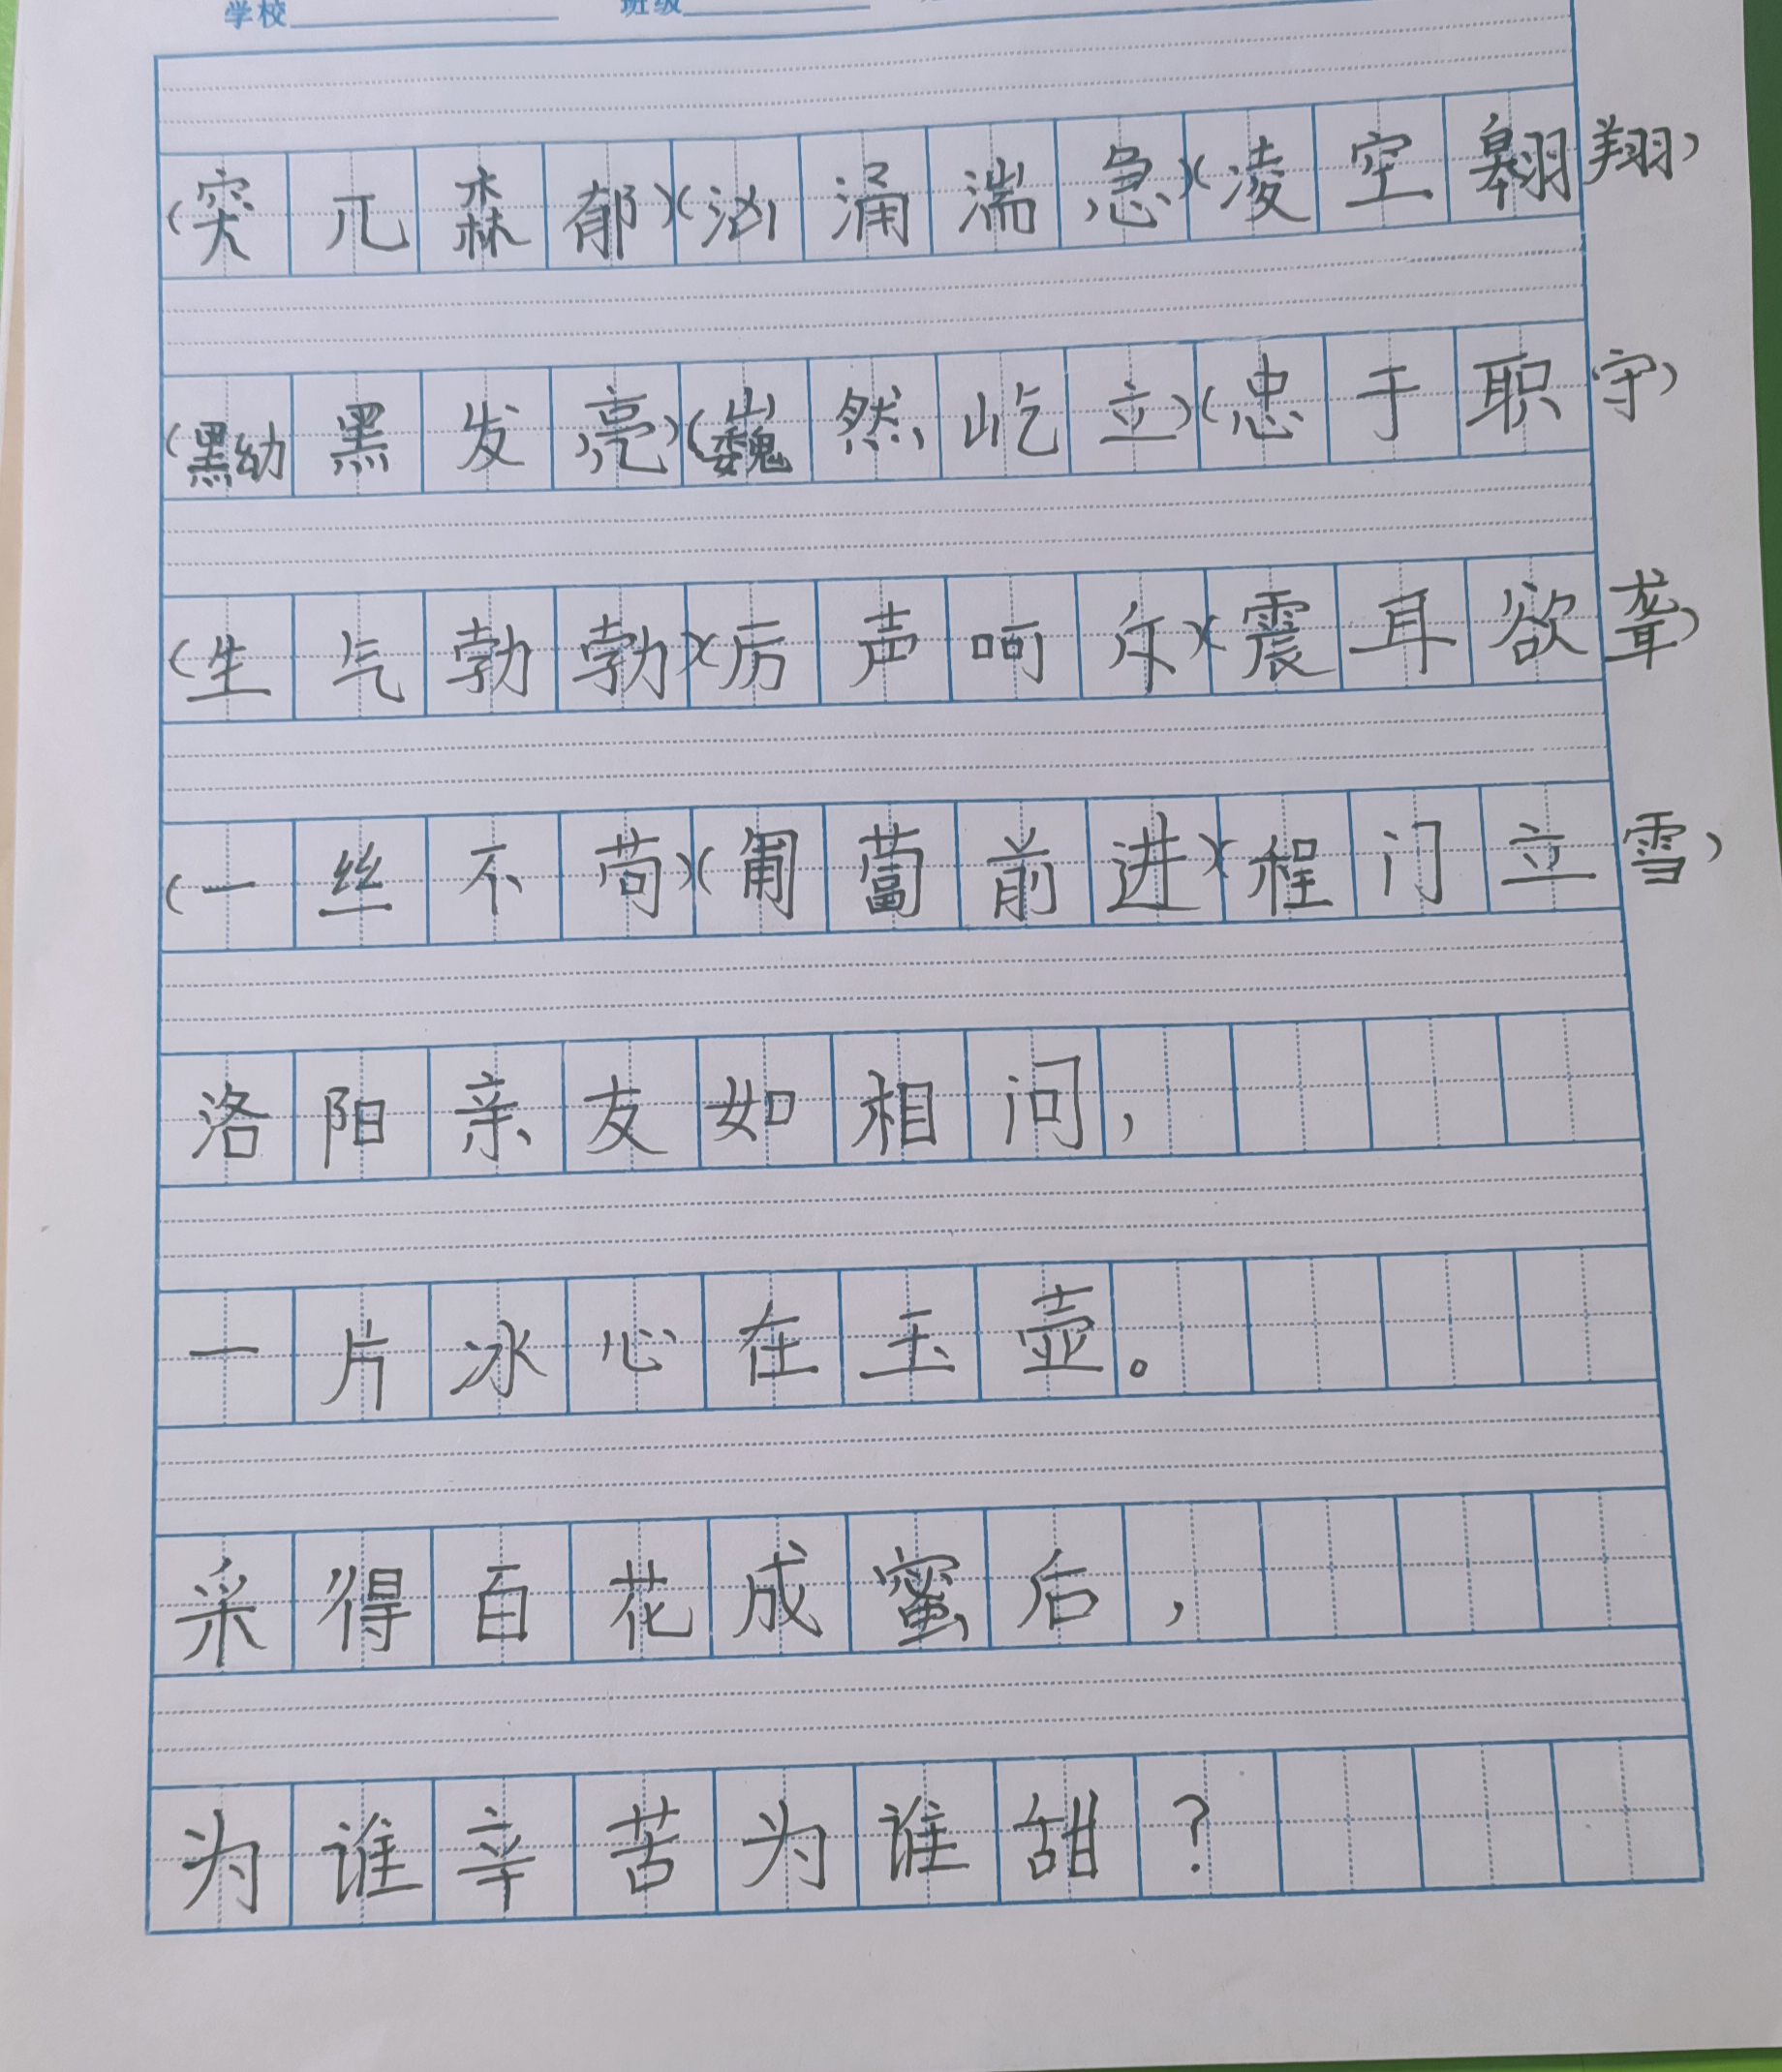 学校 班级
(突兀森郁)(汹涌湍急)(凌空翱翔)
(黝黑发亮)(巍然屹立)(忠于职守)
(生气勃勃)(厉声呵斥)(震耳欲聋)
(一丝不苟)(匍匐前进)(程门立雪)
洛阳亲友如相问,
一片冰心在玉壶。
采得百花成蜜后,
为谁辛苦为谁甜?